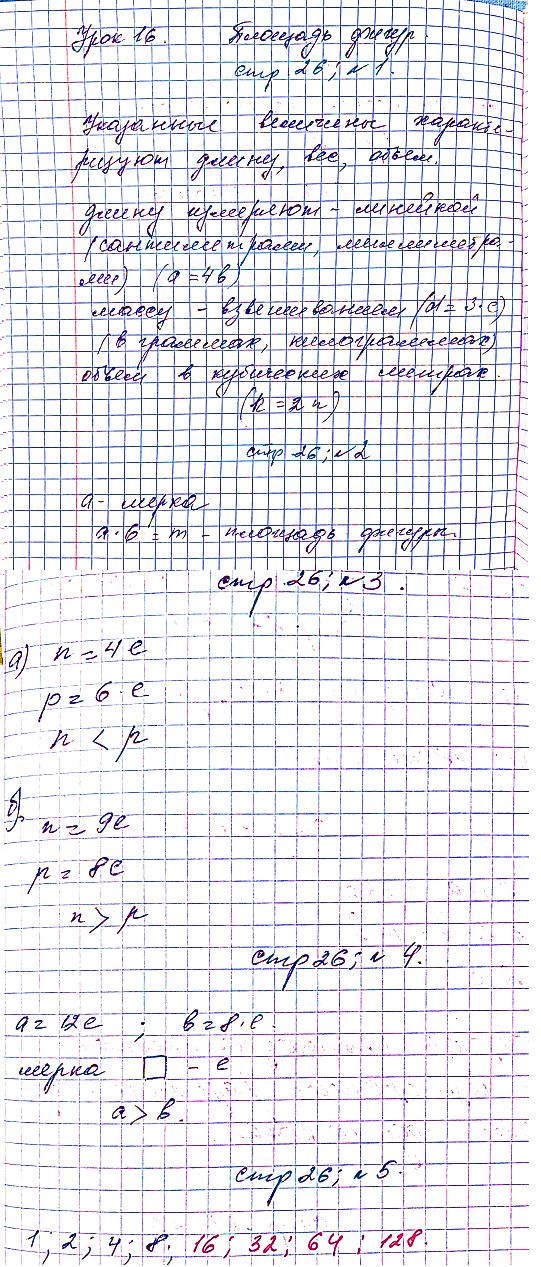 Урок 16. Площадь фигур.
стр 26; №1.
Указанные величины характе-
ризуют длину, вес, объем.
длину измеряют - линейкой
(сантиметрами, миллиметра-
ми) (а = 4в)
массу - взвешиванием (d = 3·с)
(в граммах, килограммах)
объем в кубических метрах.
(k = 2n)
стр 26; №2
а - мерка
а·6 = m - площадь фигуры
стр 26; №3.
а) n = 4е
р = 6·е
n < р
б) n = 9е
р = 8е
n > р
стр 26; № 4.
а = 12е ; в = 8·е.
мерка □ - е
а > в.
стр 26; №5.
1; 2; 4; 8; 16; 32; 64; 128.